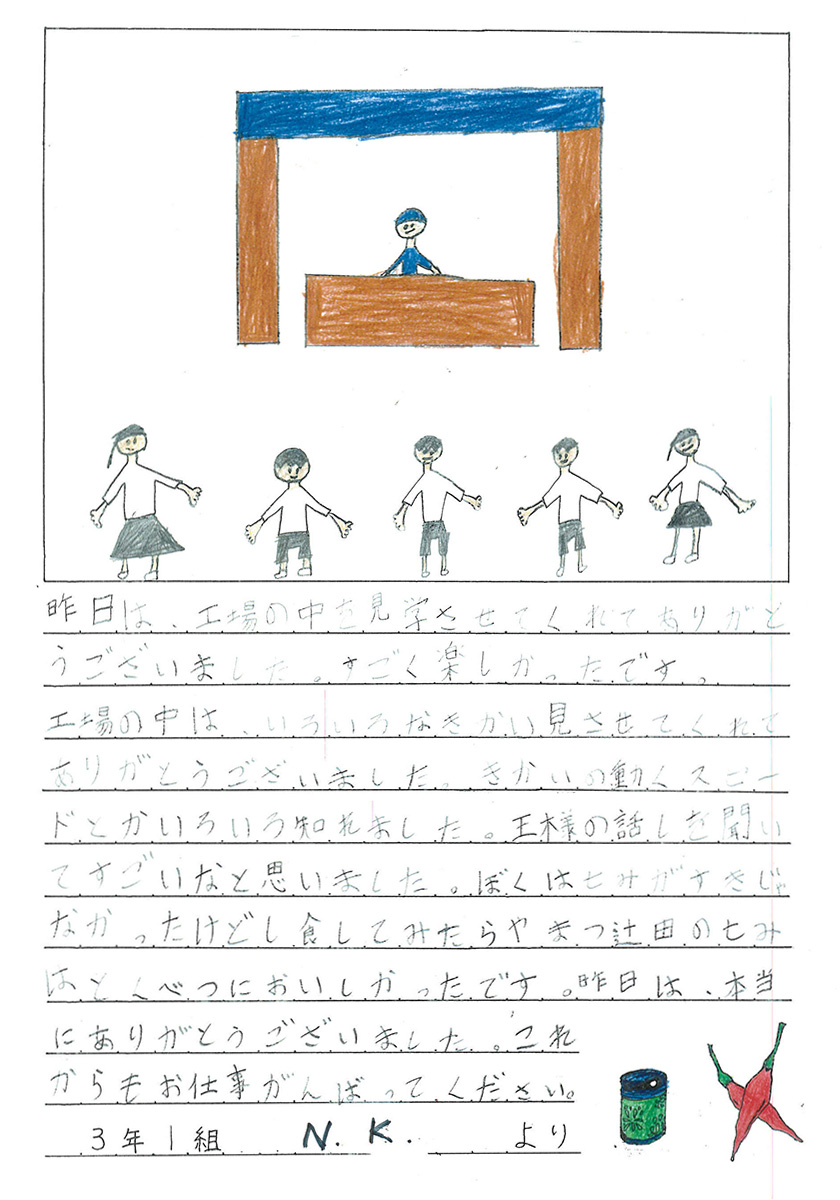 昨日は、工場の中を見学させてくれてありがと
うございました。すごく楽しかったです。
工場の中は、いろいろなきかい見させてくれて
ありがとうございました。きかいの動くスピー
ドとかいろいろ知れました。王様の話しを聞い
てすごいなと思いました。ぼくは七みがすきじゃ
なかったけどし食してみたらやまつ辻田の七み
はとくべつにおいしかったです。昨日は、本当
にありがとうございました。これ
からもお仕事がんばってください。
3年1組 N.K. より